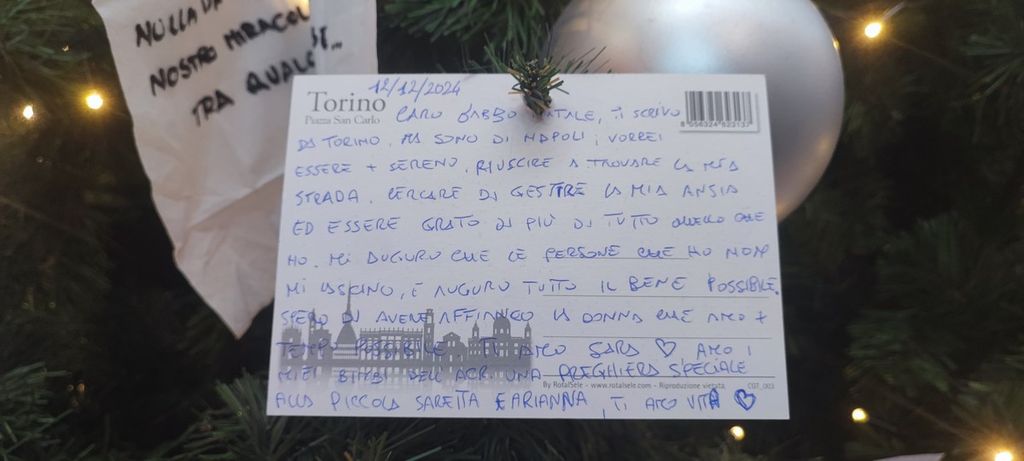 NULLA DA
NOSTRO MIRACOL
TRA QUALC
12/12/2024
Torino
Piazza San Carlo
8 056324 523137
CARO BABBO NATALE, TI SCRIVO
DA TORINO, MA SONO DI NAPOLI, VORREI
ESSERE + SERENO, RIUSCIRE A TROVARE LA MIA
STRADA. CERCARE DI GESTIRE LA MIA ANSIA
ED ESSERE GRATO DI PIÙ DI TUTTO QUELLO CHE
HO. MI AUGURO CHE LE PERSONE CHE HO NON
MI LASCINO, E AUGURO TUTTO IL BENE POSSIBILE.
SPERO DI AVERE AFFIANCO LA DONNA CHE AMO +
TEMPO POSSIBILE TI AMO SARA ♡ AMO I
MIEI BIMBI DELL'ACR. UNA PREGHIERA SPECIALE
By RotalSele - www.rotalsele.com - Riproduzione vietata CGT_003
ALLA PICCOLA SARETTA E ARIANNA, TI AMO VITA ♡